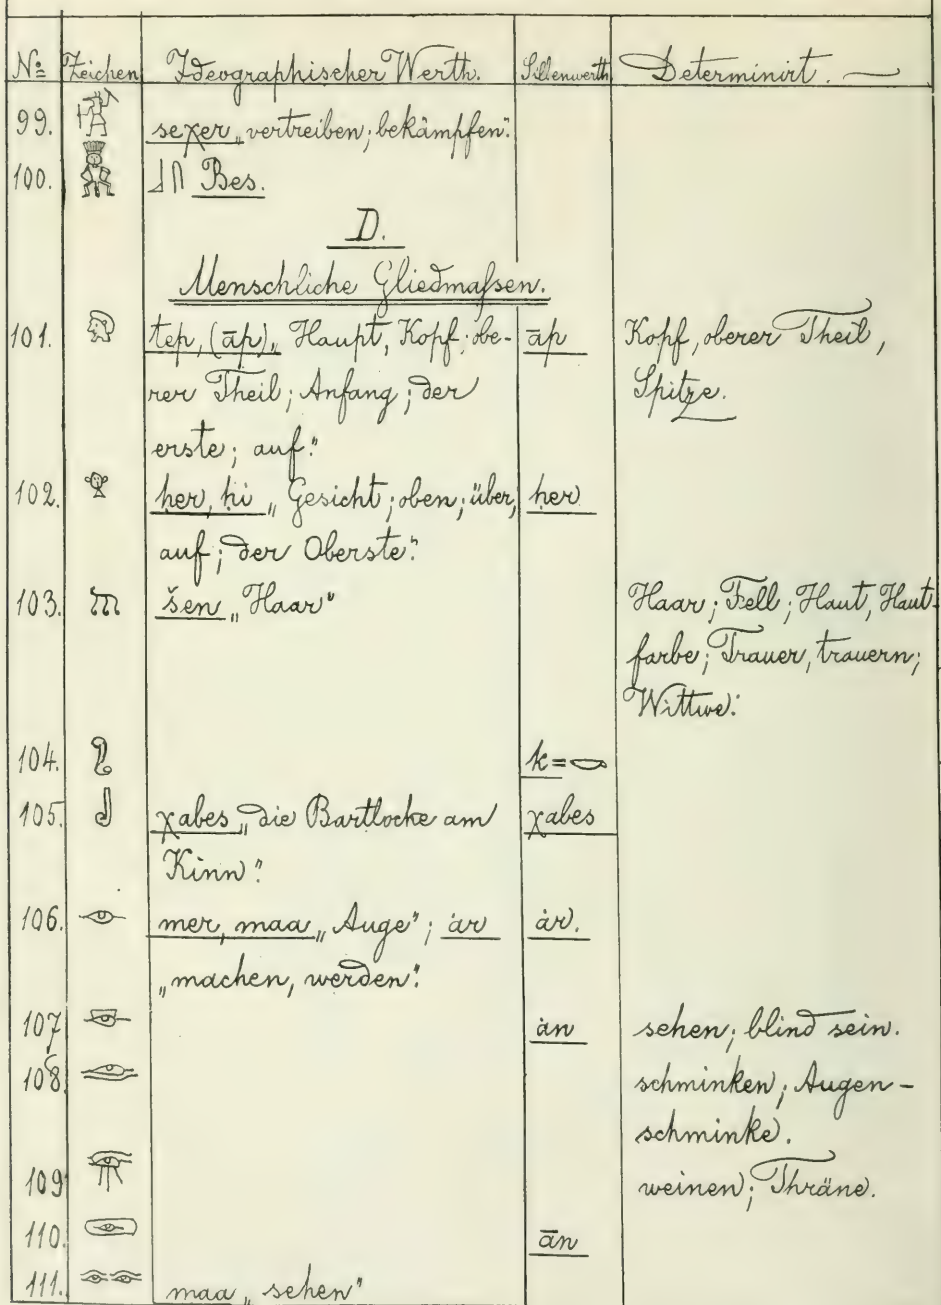 № Zeichen Ideographischer Werth. Silbenwerth Determinirt.
99. seχer „vertreiben; bekämpfen“.
100. 𓃀𓋴 Bes.
D.
Menschliche Gliedmaßen.
101. tep, (āp) „Haupt, Kopf; obe- āp Kopf, oberer Theil,
rer Theil; Anfang; der Spitze.
erste; auf“.
102. ḥer, ḥi „Gesicht; oben; über, ḥer
auf; der Oberste“.
103. šen „Haar“ Haar; Fell; Haut, Haut-
farbe; Trauer, trauern;
Wittwe.
104. k = 𓎡
105. χabes „die Bartlocke am χabes
Kinn“.
106. mer, maa „Auge“; ȧr ȧr.
„machen, werden“.
107 ȧn sehen; blind sein.
108. schminken; Augen-
schminke.
109 weinen; Thräne.
110. ān
111. maa „sehen“